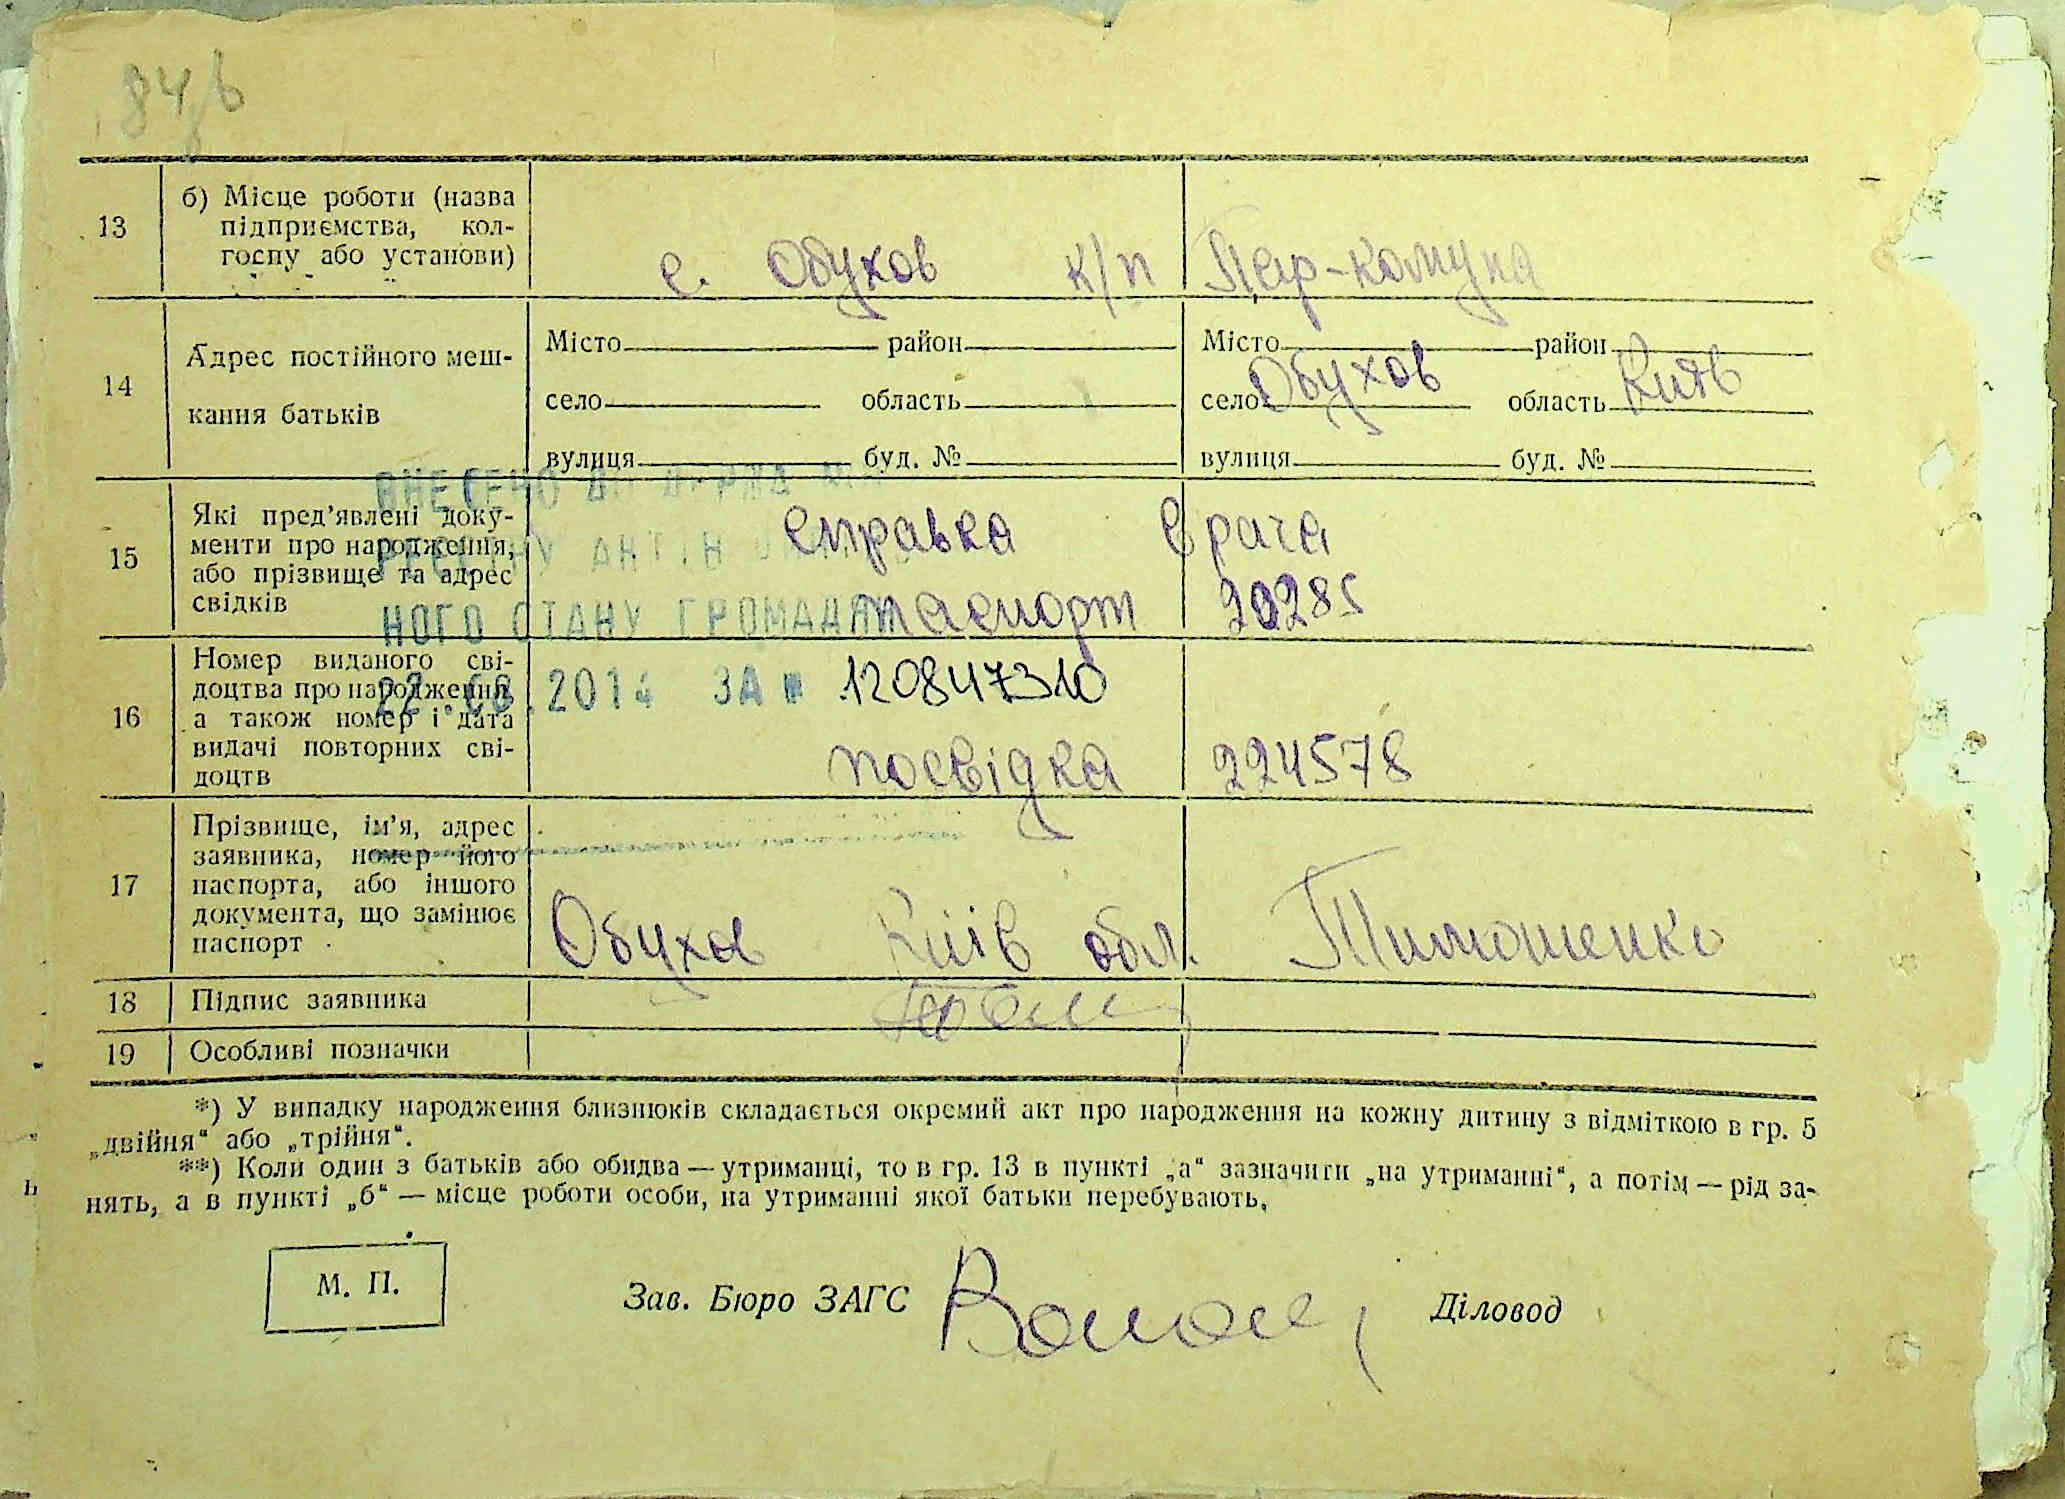 84
13
б) Місце роботи (назва
підприємства, кол-
госпу або установи)
с. Обухов к/п Пар-комуна
14
Адрес постійного меш-
кання батьків
Місто район
село область
вулиця буд. №
Місто район
село Обухов область Київ
вулиця буд. №
15
Які пред’явлені доку-
менти про народження,
або прізвище та адрес
свідків
справка врача
паспорт 20285
ВНЕСЕНО ДО ДЕРЖА
РЕЄСТРУ АКТІВ
НОГО СТАНУ ГРОМАДЯН
22.08.2014 ЗА № 120847310
16
Номер виданого сві-
доцтва про народження
а також номер і дата
видачі повторних сві-
доцтв
посвідка 224578
17
Прізвище, ім’я, адрес
заявника, номер його
паспорта, або іншого
документа, що замінює
паспорт
Обухов Київ обл. Тимошенко
18
Підпис заявника
19
Особливі позначки
*) У випадку народження близнюків складається окремий акт про народження на кожну дитину з відміткою в гр. 5
„двійня“ або „трійня“.
**) Коли один з батьків або обидва — утриманці, то в гр. 13 в пункті „а“ зазначити „на утриманні“, а потім — рід за-
нять, а в пункті „б“ — місце роботи особи, на утриманні якої батьки перебувають.
М. П.
Зав. Бюро ЗАГС
Діловод